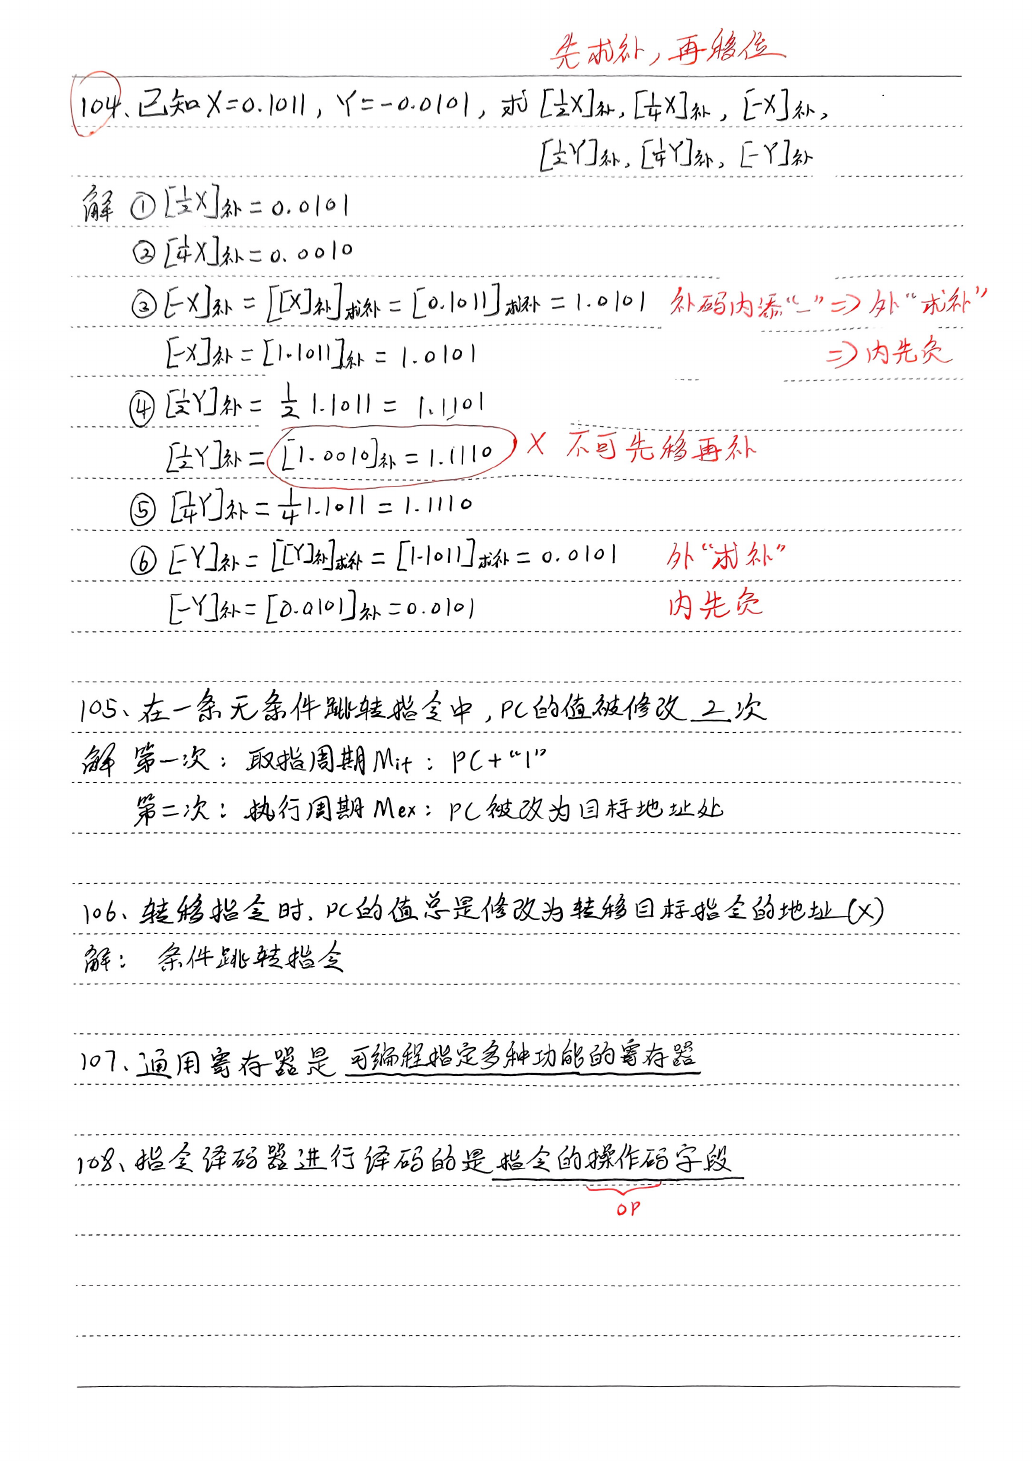 先求补,再移位
104、已知X=0.1011, Y=-0.0101, 求[½X]补,[¼X]补, [-X]补,
[½Y]补,[¼Y]补, [-Y]补
解 ①[½X]补=0.0101
②[¼X]补=0.0010
③[-X]补=[[X]补]求补=[0.1011]求补=1.0101 补码内添“-”=>外“求补”
[-X]补=[1.1011]补=1.0101 =>内先负
④[½Y]补=½1.1011=1.1101
[½Y]补=[1.0010]补=1.1110 × 不可先移再补
⑤[¼Y]补=¼1.1011=1.1110
⑥[-Y]补=[[Y]补]求补=[1.1011]求补=0.0101 外“求补”
[-Y]补=[0.0101]补=0.0101 内先负
105、在一条无条件跳转指令中,PC的值被修改 2 次
解 第一次: 取指周期Mif: PC+“1”
第二次: 执行周期Mex: PC被改为目标地址处
106、转移指令时,PC的值总是修改为转移目标指令的地址(X)
解: 条件跳转指令
107、通用寄存器是 可编程指定多种功能的寄存器
108、指令译码器进行译码的是指令的操作码字段
OP